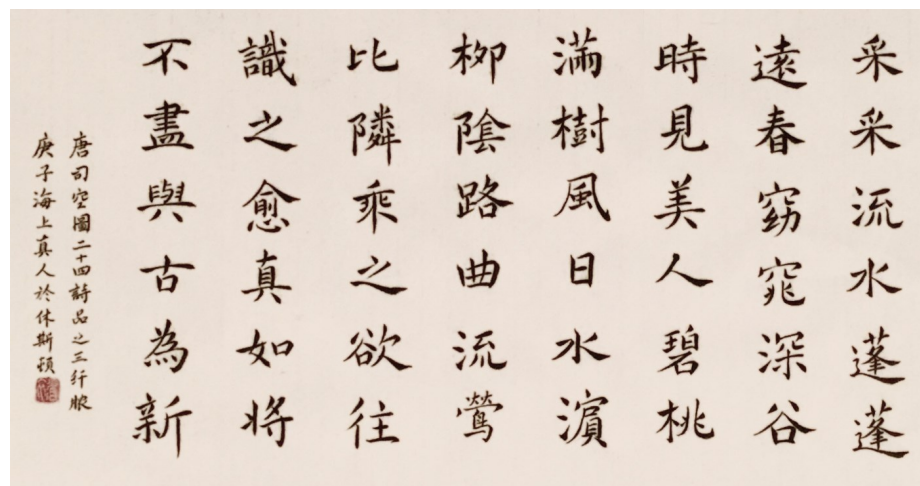 采采流水蓬蓬
遠春窈窕深谷
時見美人碧桃
滿樹風日水濱
柳陰路曲流鶯
比隣乘之欲往
識之愈真如將
不盡與古為新
唐司空圖二十四詩品之三纤
庚子海上真人於休斯頓